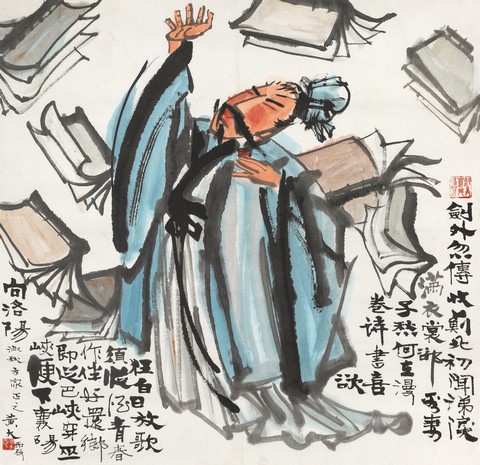 劍外忽傳收薊北初聞涕淚
滿衣裳却看妻
子愁何在漫
卷詩書喜
欲
狂白日放歌
須縱酒青春
作伴好還鄉
即從巴峽穿巫
峽便下襄陽
向洛陽
方家正之
黃大